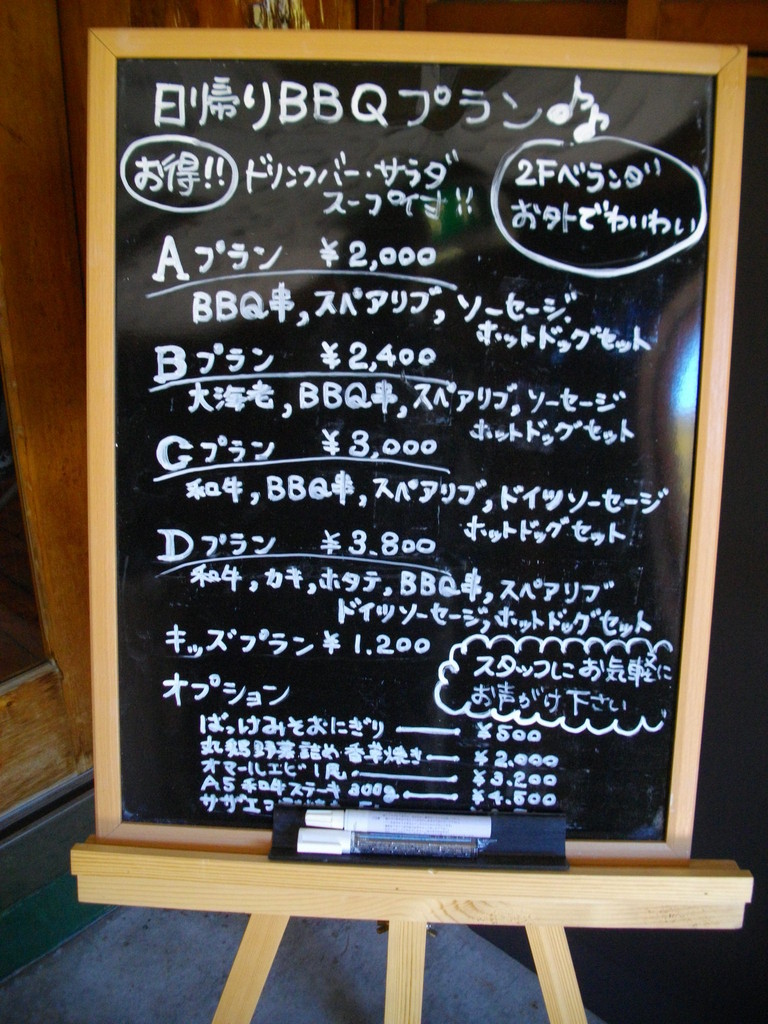 日帰りBBQプラン♪♪
お得!! ドリンクバー・サラダ
スープ付!!
2Fベランダ
お外でわいわい
Aプラン ¥2,000
BBQ串,スペアリブ,ソーセージ,
ホットドッグセット
Bプラン ¥2,400
大海老,BBQ串,スペアリブ,ソーセージ
ホットドッグセット
Cプラン ¥3,000
和牛,BBQ串,スペアリブ,ドイツソーセージ
ホットドッグセット
Dプラン ¥3.800
和牛,カキ,ホタテ,BBQ串,スペアリブ
ドイツソーセージ,ホットドッグセット
キッズプラン ¥1.200
スタッフにお気軽に
お声がけ下さい
オプション
ばっけみそおにぎり ¥500
丸鶏野菜詰め香草焼き ¥2.000
オマールエビ1尾 ¥3.200
A5和牛ステーキ300g ¥4.500
サザエ